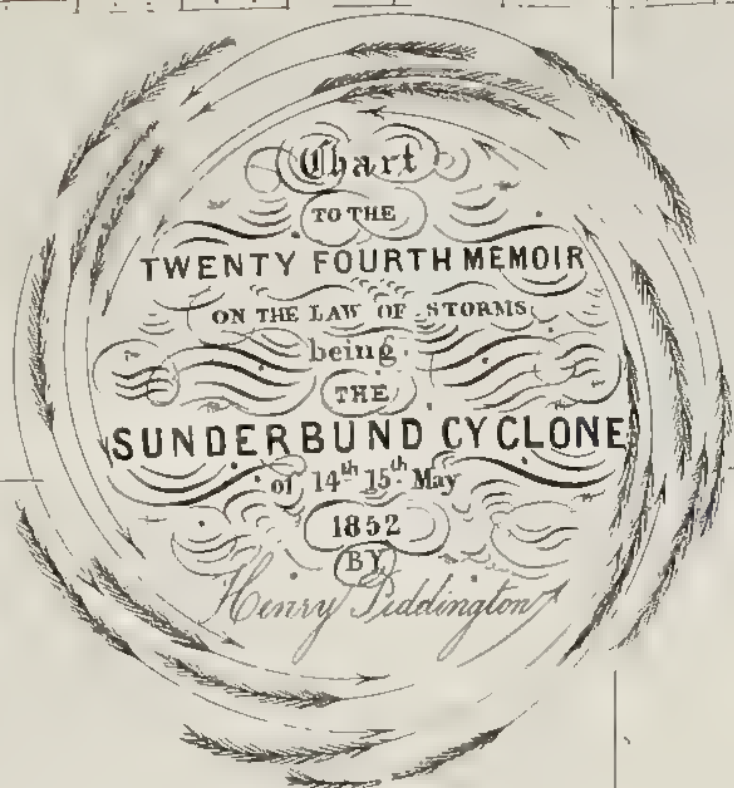 Chart
TO THE
TWENTY FOURTH MEMOIR
ON THE LAW OF STORMS
being
THE
SUNDERBUND CYCLONE
of 14th 15th May
1852
BY
Henry Piddington